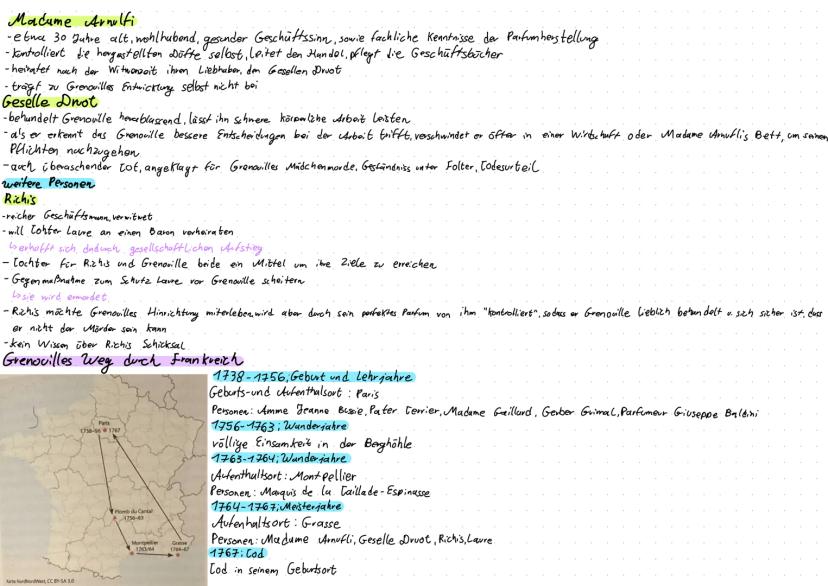 Madame Arnulfi
- etwa 30 Jahre alt, wohlhabend, gesunder Geschäftssinn, sowie fachliche Kenntnisse der Parfumherstellung
- kontrolliert die hergestellten Düfte selbst, leitet den Handel, pflegt die Geschäftsbücher
- heiratet nach der Witwenzeit ihren Liebhaber, den Gesellen Druot
- trägt zu Grenouilles Entwicklung selbst nicht bei
Geselle Druot
- behandelt Grenouille herablassend, lässt ihn schwere körperliche Arbeit leisten
- als er erkennt das Grenouille bessere Entscheidungen bei der Arbeit trifft, verschwindet er öfter in einer Wirtschaft oder Madame Arnuflis Bett, um seinen
Pflichten nachzugehen
- auch überaschender Tot, angeklagt für Grenouilles Mädchenmorde, Geständniss unter Folter, Todesurteil
weitere Personen
Richis
- reicher Geschäftsmann, verwitwet
- will Tohter Laure an einen Baron verheiraten
↳ erhofft sich dadurch gesellschaftlichen Aufstieg
- Tochter für Richis und Grenouille beide ein Mittel um ihre Ziele zu erreichen
- Gegenmaßnahme zum Schutz Laure vor Grenouille scheitern
↳ sie wird ermordet
- Richis möchte Grenouilles Hinrichtung miterleben, wird aber durch sein perfektes Parfum von ihm "kontrolliert", sodass er Grenouille lieblich behandelt u. sich sicher ist, dass
er nicht der Mörder sein kann
- kein Wissen über Richis Schicksal
Grenouilles Weg durch Frankreich
1738-1756; Geburt und Lehrjahre
Geburts- und Aufenthalsort: Paris
Personen: Amme Jeanne Bussie, Pater Terrier, Madame Gaillard, Gerber Grimal, Parfumeur Giuseppe Baldini
1756-1763; Wanderjahre
völlige Einsamkeit in der Berghöhle
1763-1764; Wanderjahre
Aufenthaltsort: Montpellier
Personen: Marquis de la Taillade-Espinasse
1764-1767; Meisterjahre
Aufenhaltsort: Grasse
Personen: Madame Arnufli, Geselle Druot, Richis, Laure
1767: Tod
Tod in seinem Geburtsort
Paris
1738-56 1767
Plomb du Cantal
1756-63
Montpellier
1763/64
Grasse
1764-67
Karte: NordNordWest, CC BY-SA 3.0